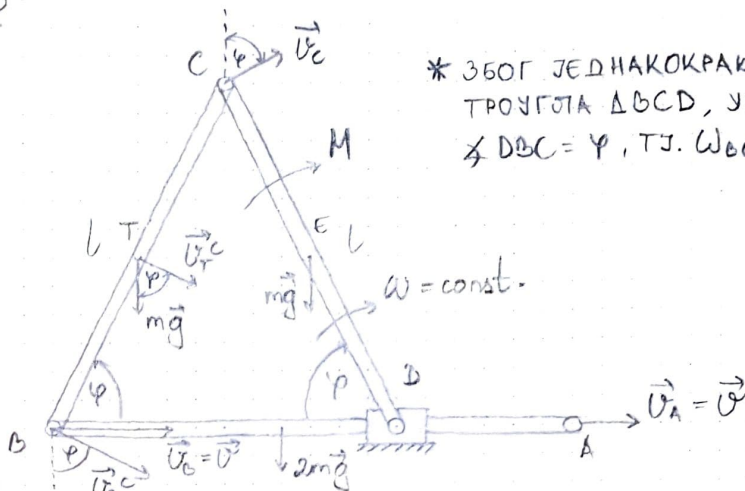 C φ v⃗_C
* ЗБОГ ЈЕДНАКОКРАК
ТРОУГЛА ΔBCD, У
∢ DBC = φ, ТЈ. ω_B
M
l T v⃗_T^C E l
φ
mg⃗ mg⃗ ω = const.
φ φ D v⃗_A = v⃗
B v⃗_B = v⃗ A
φ 2mg⃗